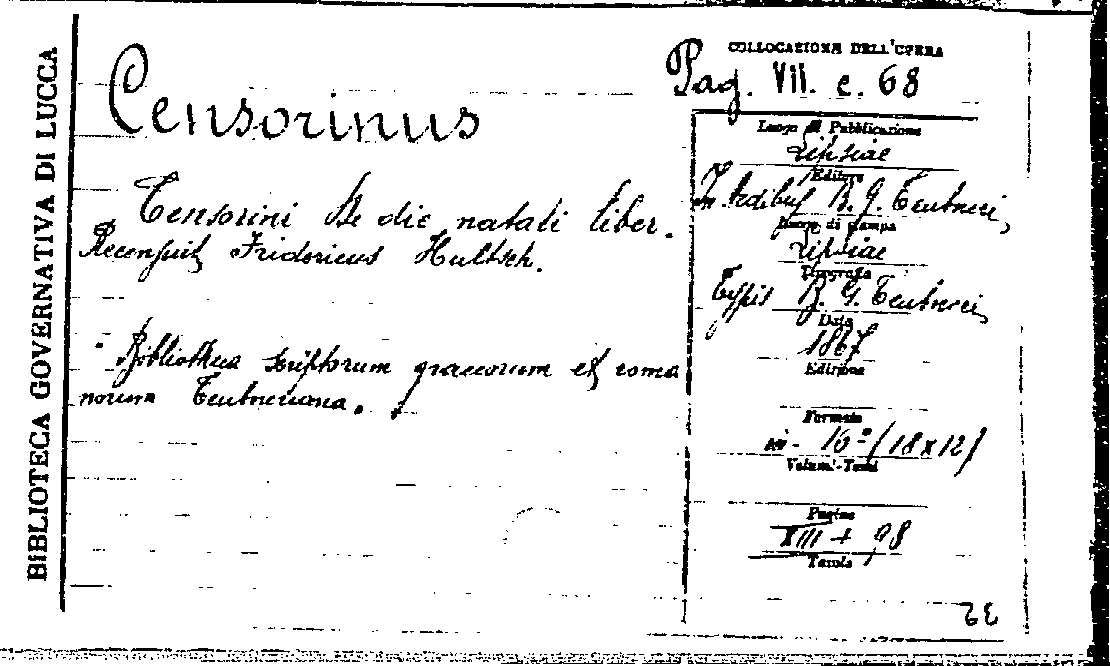 BIBLIOTECA GOVERNATIVA DI LUCCA
Censorinus
Censorini De die natali liber.
Recensuit Fridericus Hultsch.
- Bibliotheca scriptorum graecorum et roma
norum Teubneriana.
COLLOCAZIONE DELL'OPERA
Pag. VII. e. 68
Luogo di Pubblicazione
Lipsiae
Editore
In Aedibus B. G. Teubneri
Luogo di stampa
Lipsiae
Tipografia
Typis B. G. Teubneri
Data
1867
Edizione
Formato
in- 16° (18x12)
Volumi-Tomi
Pagine
XIII + 98
Tavole